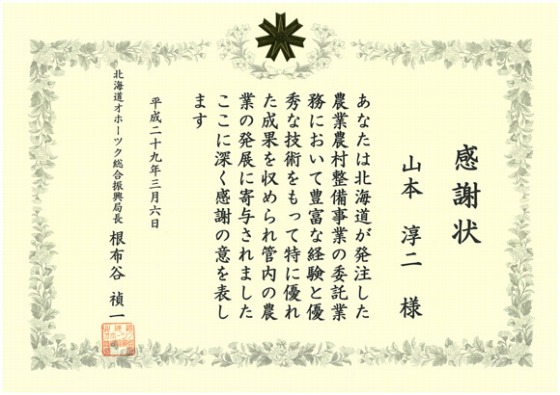 感謝状
山本 淳二 様
あなたは北海道が発注した
農業農村整備事業の委託業
務において豊富な経験と優
秀な技術をもって特に優れ
た成果を収められ管内の農
業の発展に寄与されました
ここに深く感謝の意を表し
ます
平成二十九年三月六日
北海道オホーツク総合振興局長 根布谷 禎一